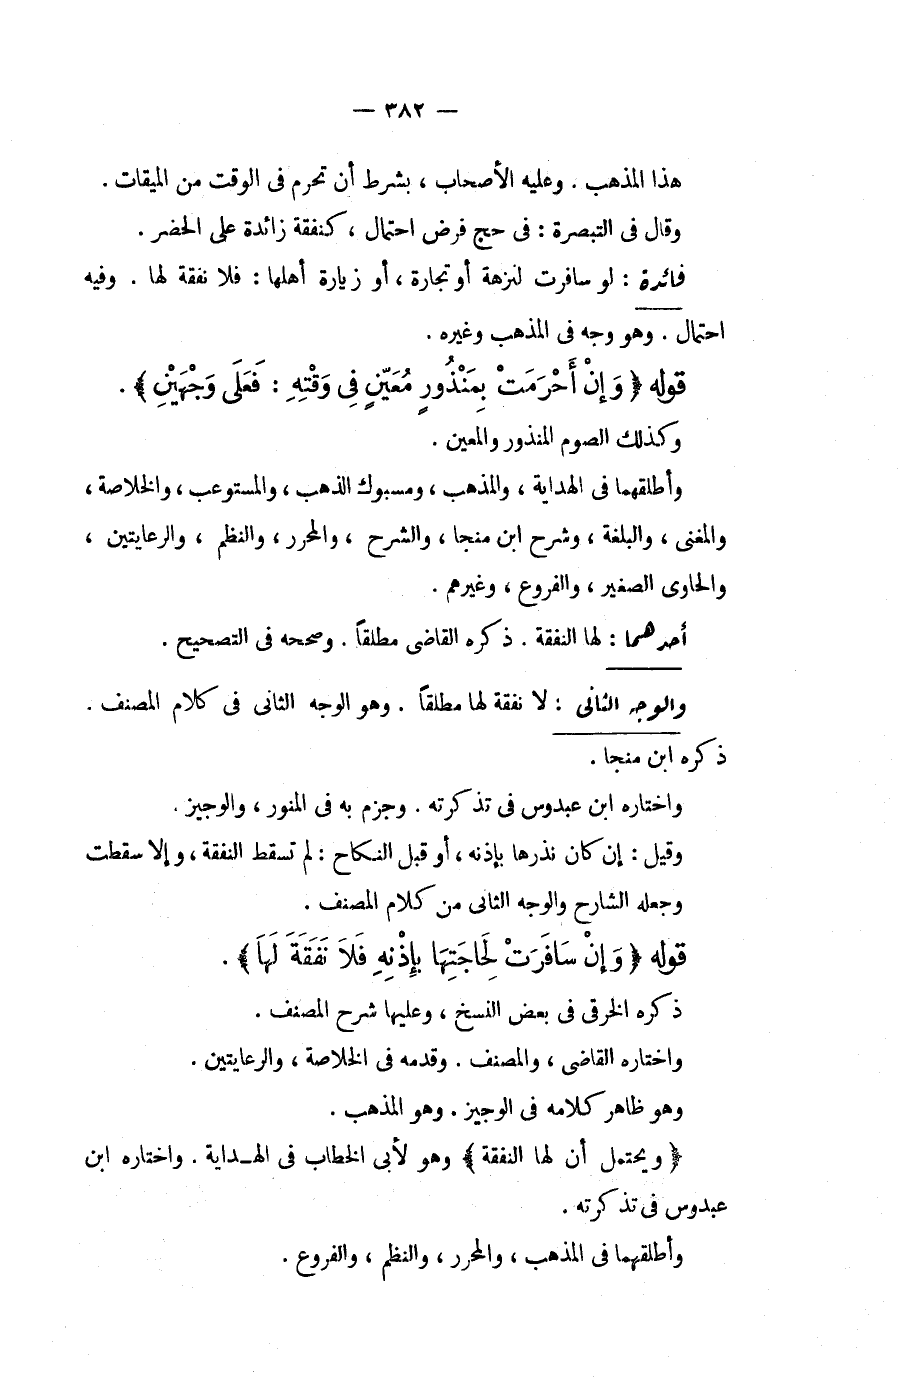 — ٣٨٢ —
هذا المذهب . وعليه الأصحاب ، بشرط أن تحرم فى الوقت من الميقات .
وقال فى التبصرة : فى حج فرض احتمال ، كنفقة زائدة على الحضر .
فائدة : لو سافرت لنزهة أو تجارة ، أو زيارة أهلها : فلا نفقة لها . وفيه
احتمال . وهو وجه فى المذهب وغيره .
قوله ﴿ وَإِنْ أَحْرَمَتْ بِمَنْذُورٍ مُعَيَّنٍ فِى وَقْتِهِ : فَعَلَى وَجْهَيْنِ ﴾ .
وكذلك الصوم المنذور والمعين .
وأطلقهما فى الهداية ، والمذهب ، ومسبوك الذهب ، والمستوعب ، والخلاصة ،
والمغنى ، والبلغة ، وشرح ابن منجا ، والشرح ، والمحرر ، والنظم ، والرعايتين ،
والحاوى الصغير ، والفروع ، وغيرهم .
أحدهما : لها النفقة . ذكره القاضى مطلقاً . وصححه فى التصحيح .
والوجه الثانى : لا نفقة لها مطلقاً . وهو الوجه الثانى فى كلام المصنف .
ذكره ابن منجا .
واختاره ابن عبدوس فى تذكرته . وجزم به فى المنور ، والوجيز .
وقيل : إن كان نذرها بإذنه ، أو قبل النكاح : لم تسقط النفقة ، وإلا سقطت
وجعله الشارح والوجه الثانى من كلام المصنف .
قوله ﴿ وَإِنْ سَافَرَتْ لِحَاجَتِهَا بِإِذْنِهِ فَلَا نَفَقَةَ لَهَا ﴾ .
ذكره الخرقى فى بعض النسخ ، وعليها شرح المصنف .
واختاره القاضى ، والمصنف . وقدمه فى الخلاصة ، والرعايتين .
وهو ظاهر كلامه فى الوجيز . وهو المذهب .
﴿ ويحتمل أن لها النفقة ﴾ وهو لأبى الخطاب فى الهـداية . واختاره ابن
عبدوس فى تذكرته .
وأطلقهما فى المذهب ، والمحرر ، والنظم ، والفروع .